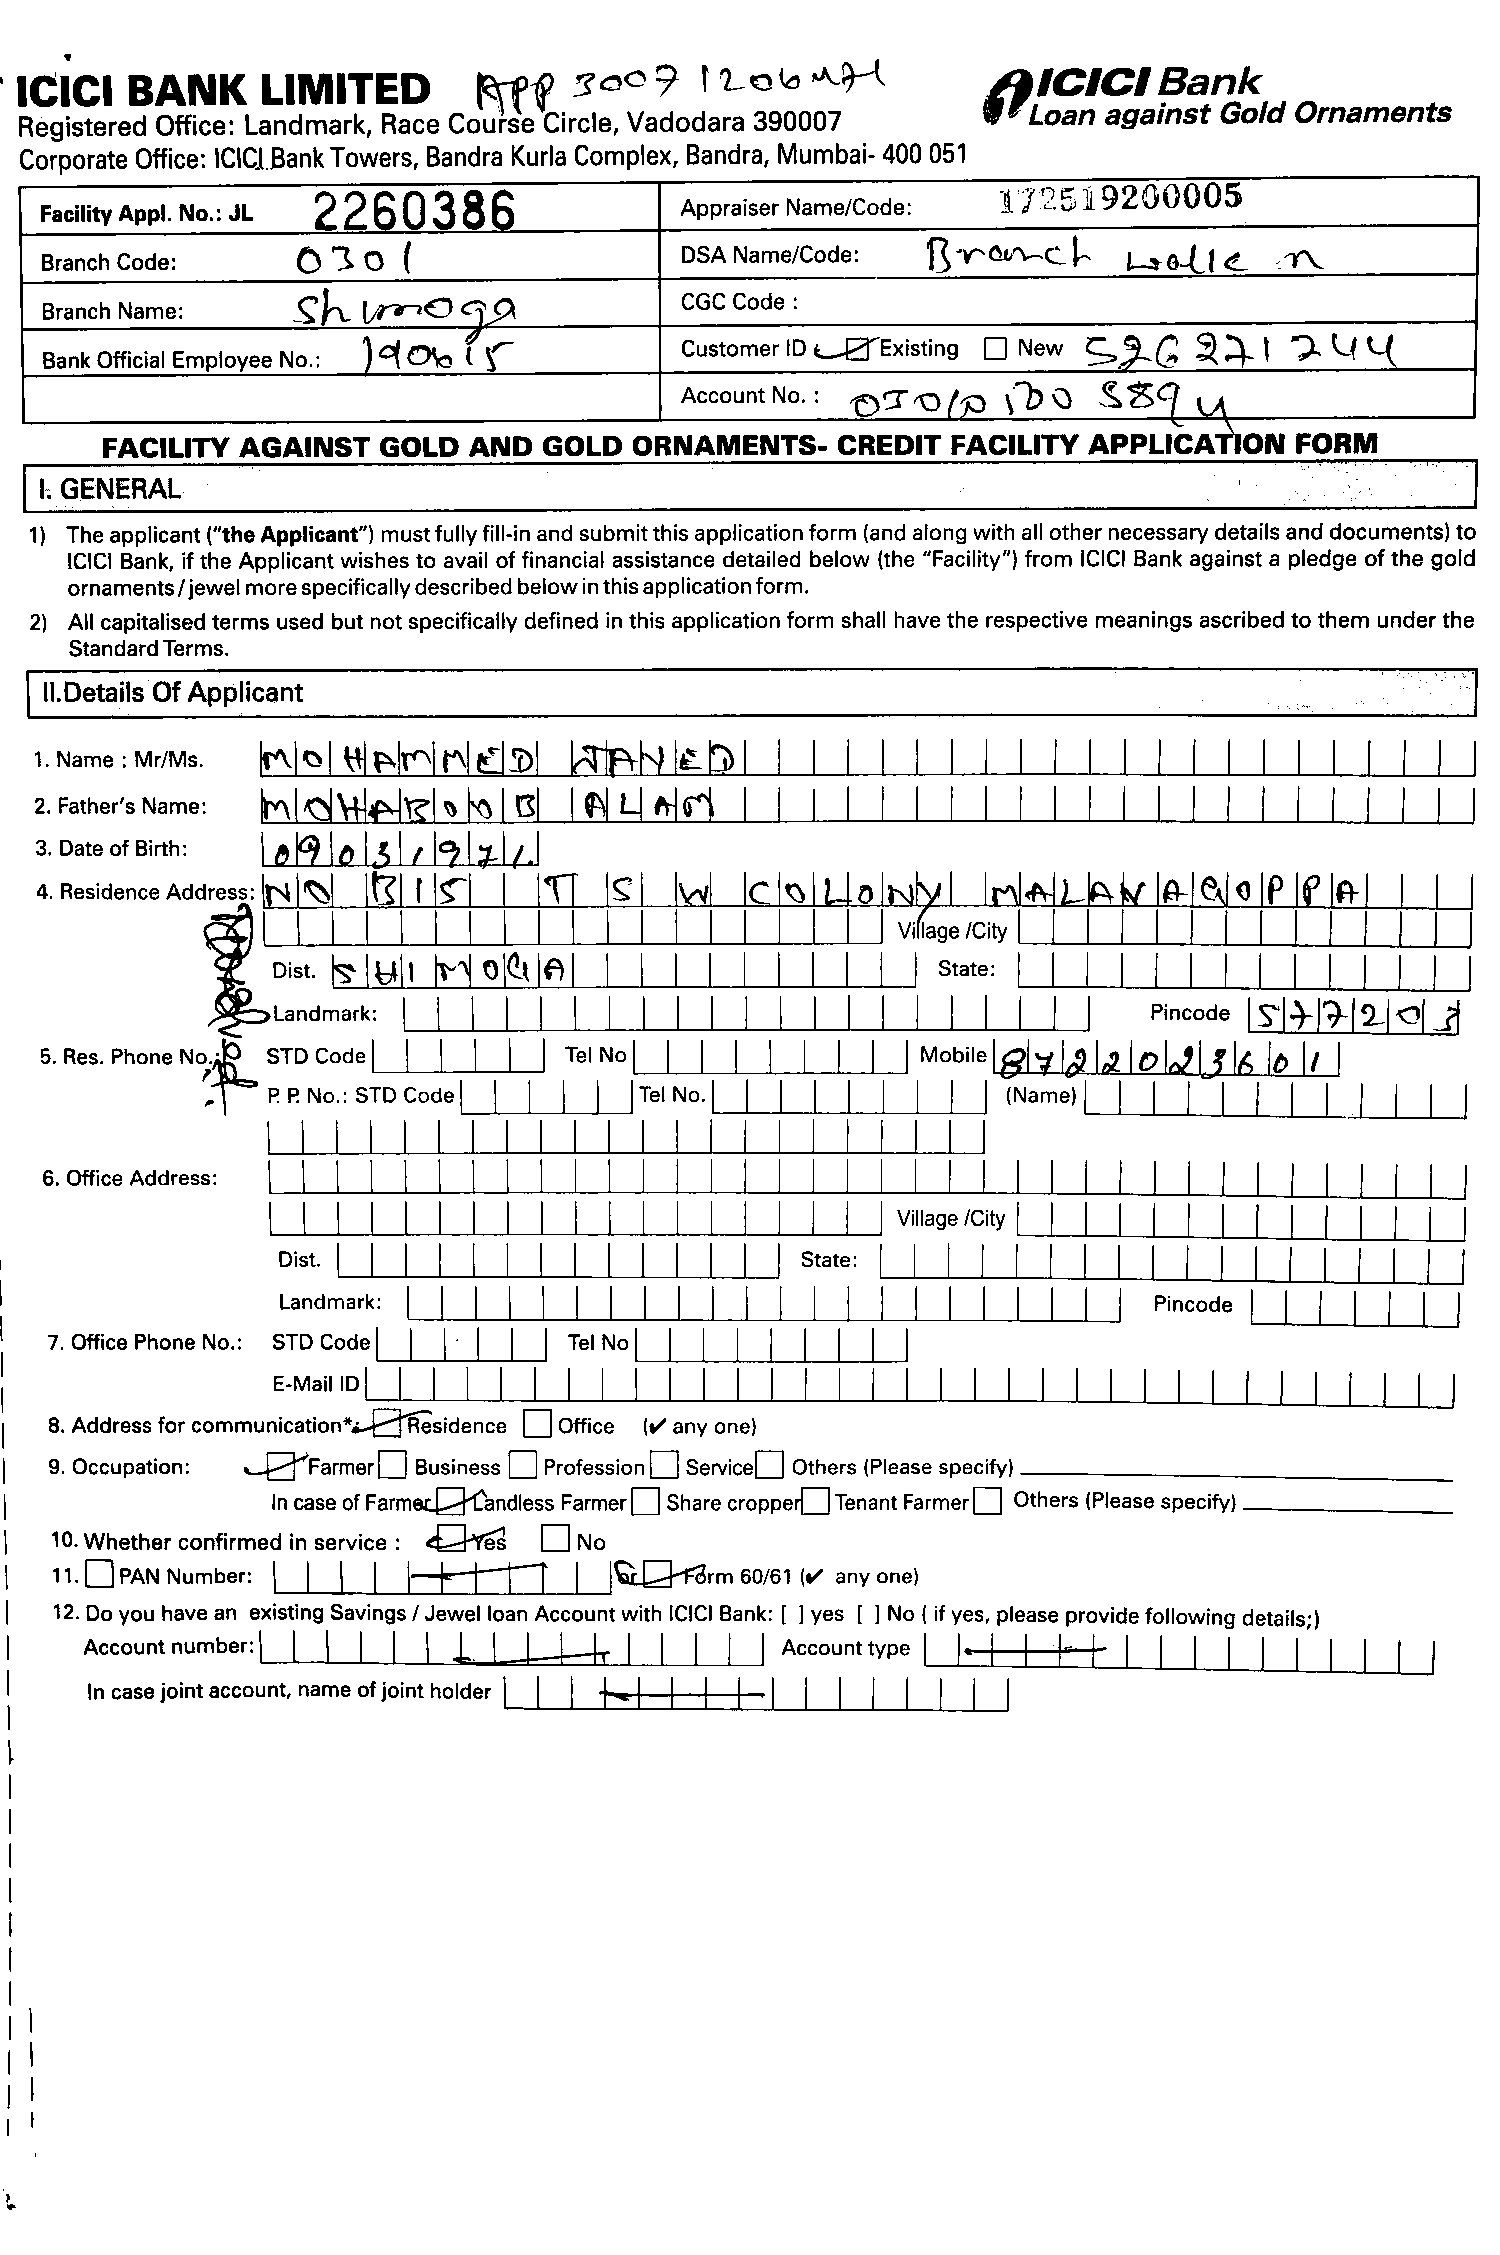 ICICI BANK LIMITED
ICICI Bank
Loan against Gold Ornaments
Registered Office: Landmark, Race Course Circle, Vadodara 390007
Corporate Office: ICICI Bank Towers, Bandra Kurla Complex, Bandra, Mumbai- 400 051
Facility Appl. No.: JL 2260386
Appraiser Name/Code: 172519200005
Branch Code: 0301
DSA Name/Code: Branch
Branch Name: Shimoga
CGC Code :
Bank Official Employee No.: 190615
Customer ID Existing New 526271244
Account No. :
FACILITY AGAINST GOLD AND GOLD ORNAMENTS- CREDIT FACILITY APPLICATION FORM
I. GENERAL
1) The applicant ("the Applicant") must fully fill-in and submit this application form (and along with all other necessary details and documents) to
ICICI Bank, if the Applicant wishes to avail of financial assistance detailed below (the "Facility") from ICICI Bank against a pledge of the gold
ornaments/jewel more specifically described below in this application form.
2) All capitalised terms used but not specifically defined in this application form shall have the respective meanings ascribed to them under the
Standard Terms.
II.Details Of Applicant
1. Name : Mr/Ms. MOHAMMED JAVED
2. Father's Name: MOHABOOB ALAM
3. Date of Birth: 09031971
4. Residence Address: NO B15 T S W COLONY MALANAGOPPA
Village /City
Dist. SHIMOGA State:
Landmark: Pincode 577203
5. Res. Phone No.: STD Code Tel No Mobile 8722023601
P. P. No.: STD Code Tel No. (Name)
6. Office Address:
Village /City
Dist. State:
Landmark: Pincode
7. Office Phone No.: STD Code Tel No
E-Mail ID
8. Address for communication*: Residence Office (✔ any one)
9. Occupation: Farmer Business Profession Service Others (Please specify)
In case of Farmer Landless Farmer Share cropper Tenant Farmer Others (Please specify)
10. Whether confirmed in service : Yes No
11. PAN Number: or Form 60/61 (✔ any one)
12. Do you have an existing Savings / Jewel loan Account with ICICI Bank: [ ] yes [ ] No ( if yes, please provide following details;)
Account number: Account type
In case joint account, name of joint holder